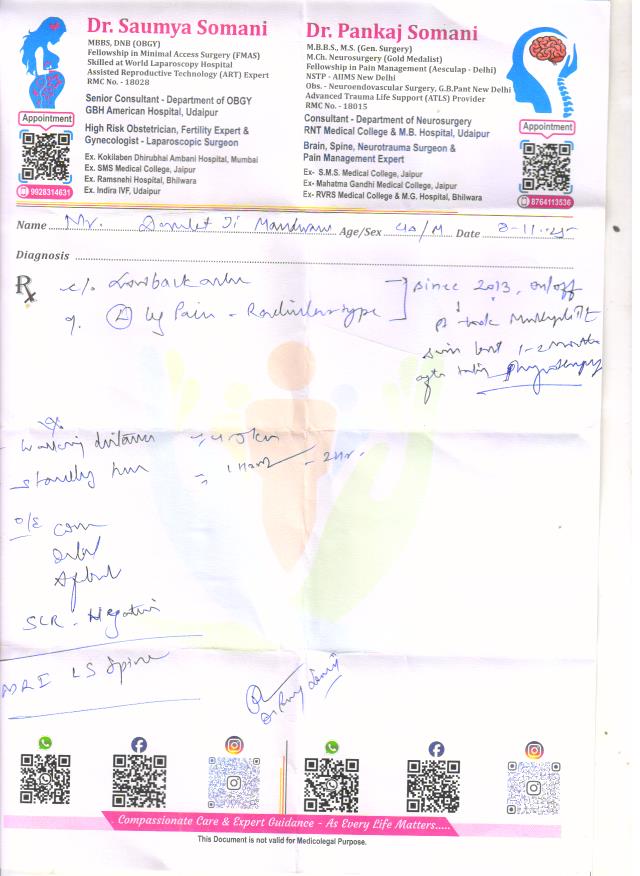 Dr. Saumya Somani
MBBS, DNB (OBGY)
Fellowship in Minimal Access Surgery (FMAS)
Skilled at World Laparoscopy Hospital
Assisted Reproductive Technology (ART) Expert
RMC No. - 18028
Senior Consultant - Department of OBGY
GBH American Hospital, Udaipur
High Risk Obstetrician, Fertility Expert &
Gynecologist - Laparoscopic Surgeon
Ex. Kokilaben Dhirubhai Ambani Hospital, Mumbai
Ex. SMS Medical College, Jaipur
Ex. Ramsnehi Hospital, Bhilwara
Ex. Indira IVF, Udaipur
Appointment
9928314631
Dr. Pankaj Somani
M.B.B.S., M.S. (Gen. Surgery)
M.Ch. Neurosurgery (Gold Medalist)
Fellowship in Pain Management (Aesculap - Delhi)
NSTP - AIIMS New Delhi
Obs. - Neuroendovascular Surgery, G.B.Pant New Delhi
Advanced Trauma Life Support (ATLS) Provider
RMC No. - 18015
Consultant - Department of Neurosurgery
RNT Medical College & M.B. Hospital, Udaipur
Brain, Spine, Neurotrauma Surgeon &
Pain Management Expert
Ex- S.M.S. Medical College, Jaipur
Ex-Mahatma Gandhi Medical College, Jaipur
Ex- RVRS Medical College & M.G. Hospital, Bhilwara
Appointment
8764113536
Name Mr. Ji Age/Sex /M Date
Diagnosis
Rx c/o Lowback since 2013, on/off
(L) leg Pain - Radicular type
pt took multiple
since last 1-2 months
after Physiotherapy
Walking distance
Standing 1 Hour - 2 Hr.
O/E
SLR - Negative
MRI LS Spine
Compassionate Care & Expert Guidance - As Every Life Matters.....
This Document is not valid for Medicolegal Purpose.